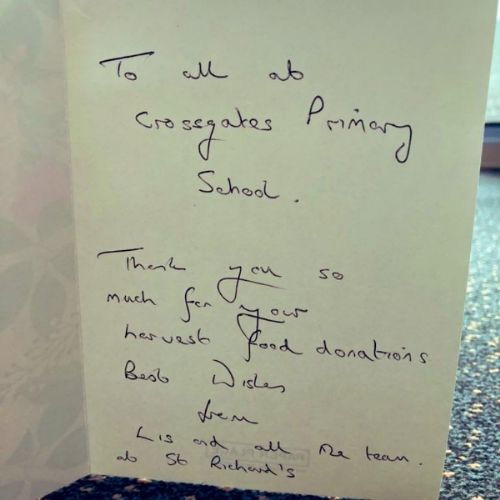 To all at
Crossgates Primary
School.
Thank you so
much for your
harvest food donations
Best Wishes
from
Lis and all the team.
at St Richard's